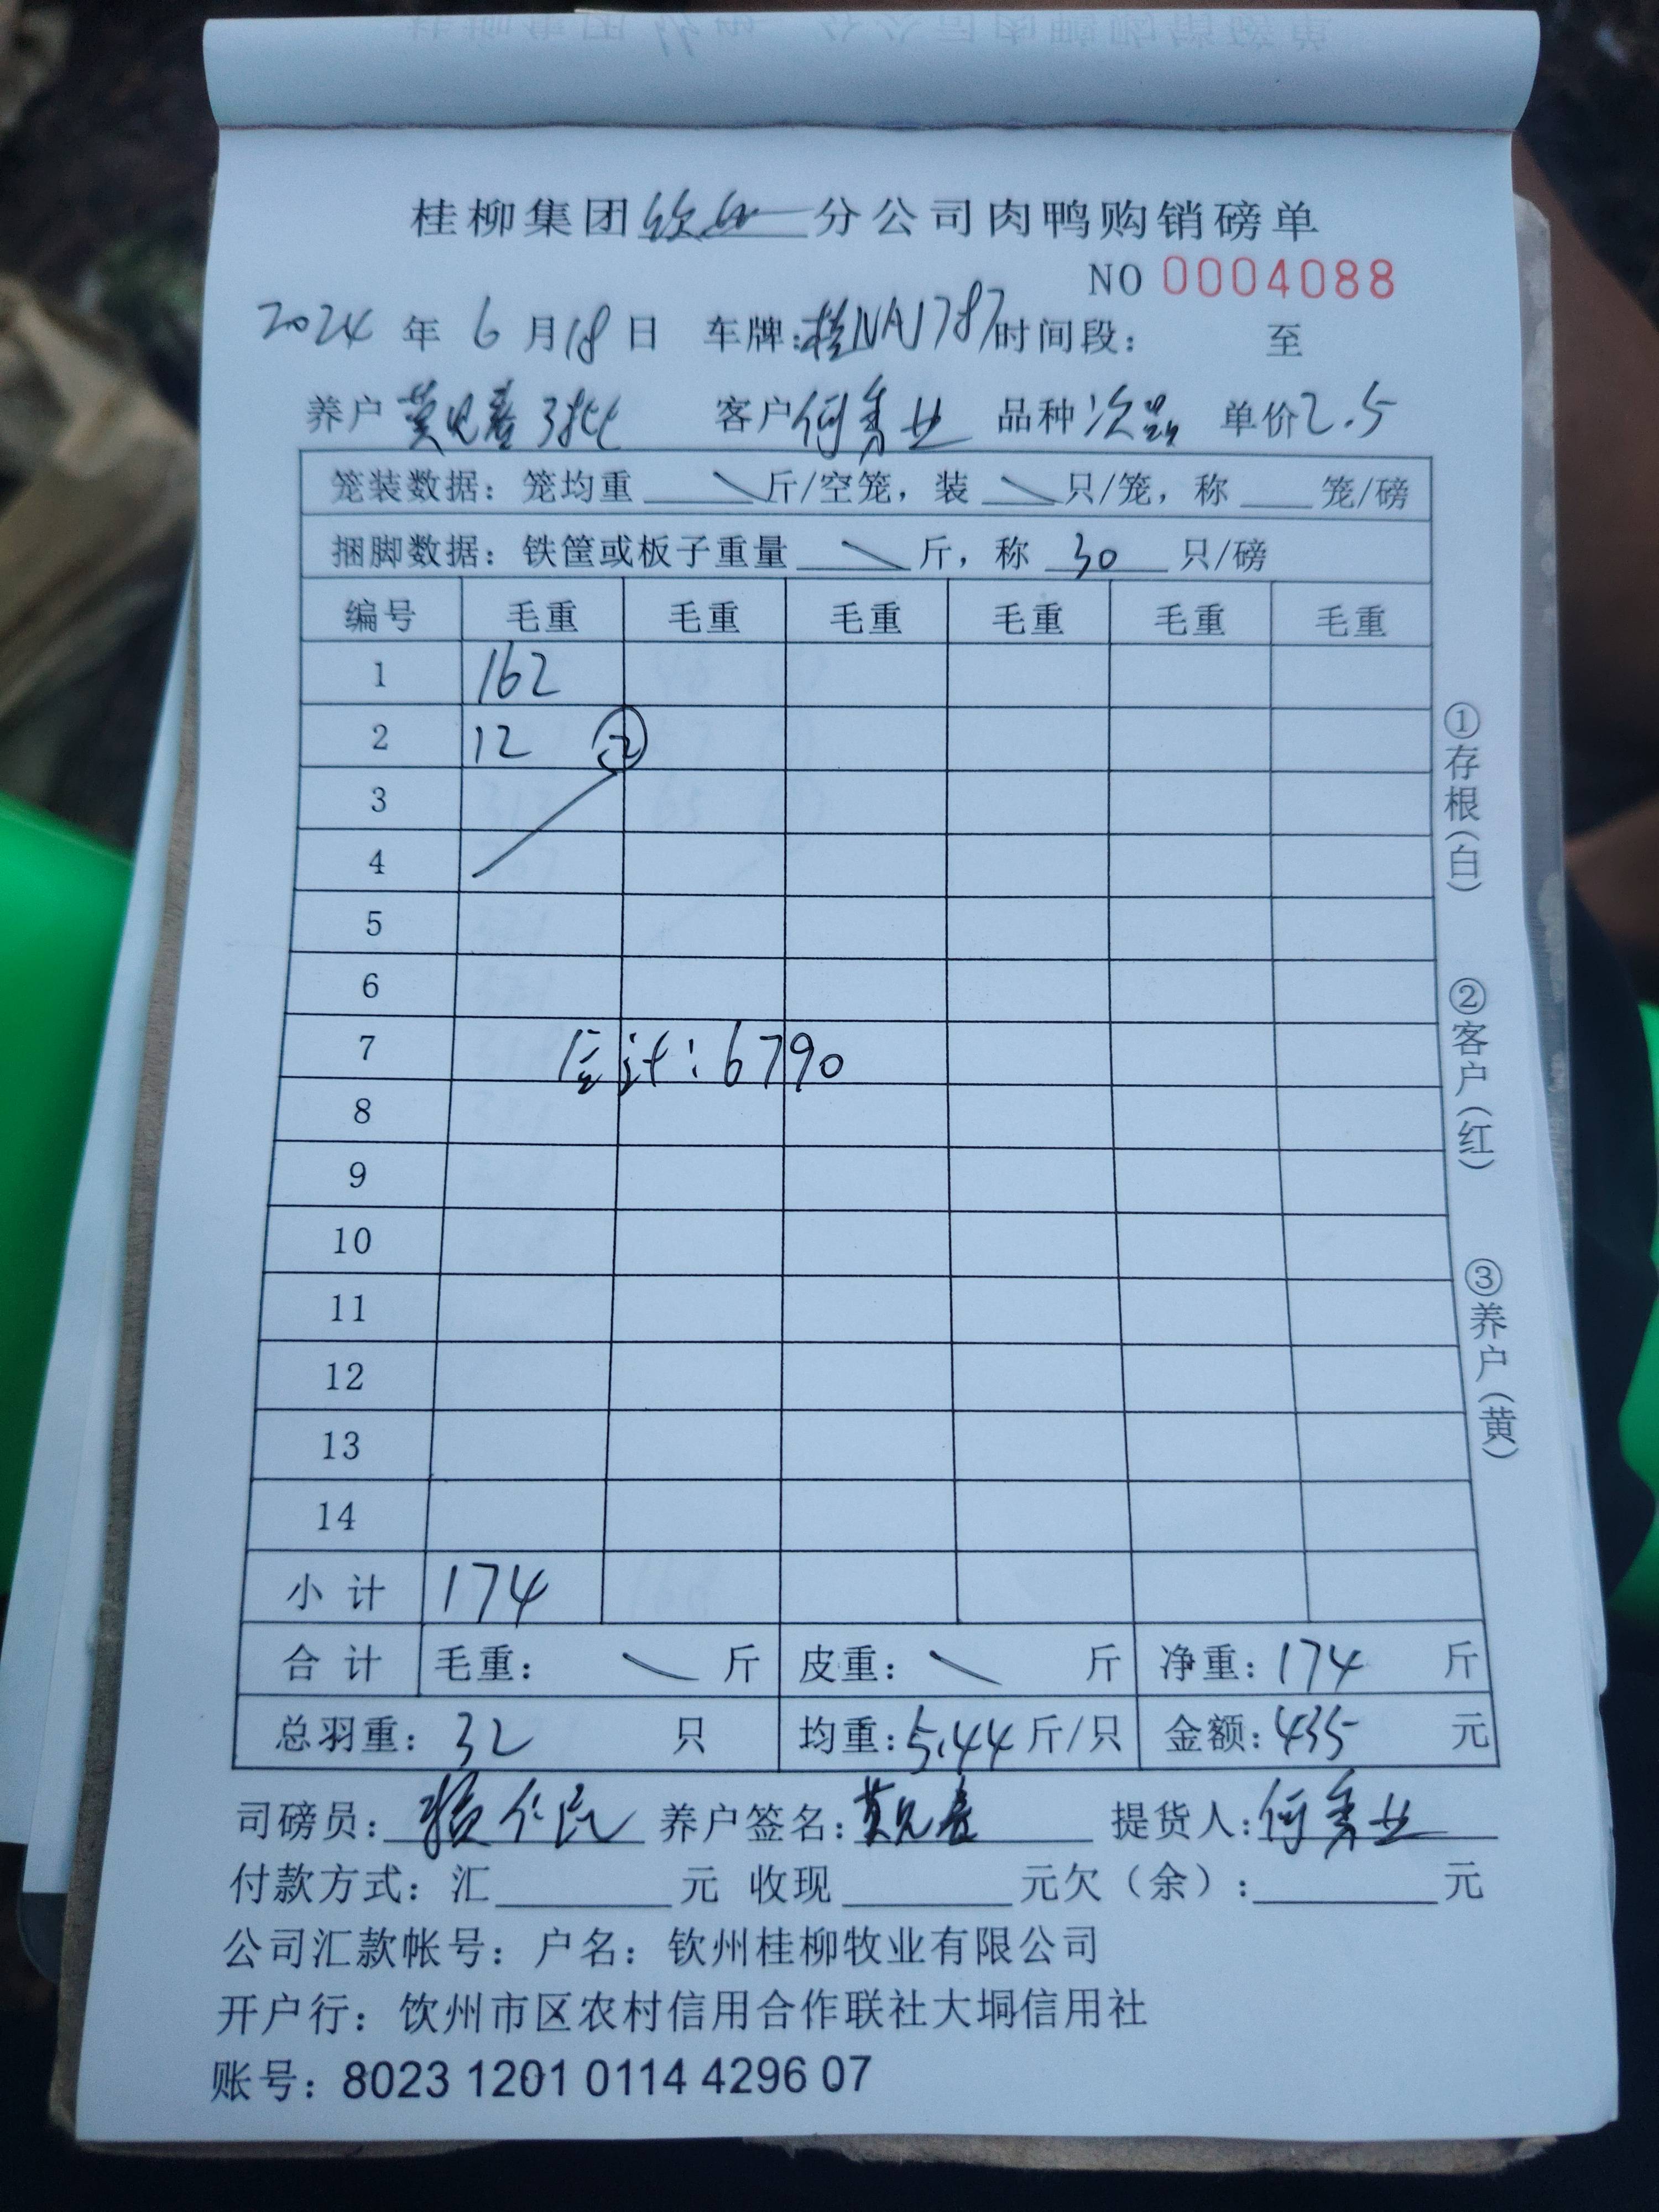 桂柳集团钦州分公司肉鸭购销磅单
NO 0004088
2024 年 6 月 18 日 车牌:桂NAJ787 时间段: 至
养户 莫见喜 3批 客户 何秀业 品种 次品 单价 2.5
笼装数据: 笼均重 \ 斤/空笼, 装 \ 只/笼, 称 笼/磅
捆脚数据: 铁筐或板子重量 \ 斤, 称 30 只/磅
编号 毛重 毛重 毛重 毛重 毛重 毛重
1 162
2 12 ②
3
4
5
6
7 合计: 6790
8
9
10
11
12
13
14
小计 174
合计 毛重: \ 斤 皮重: \ 斤 净重: 174 斤
总羽重: 32 只 均重: 5.44 斤/只 金额: 435 元
司磅员: 养户签名: 莫见喜 提货人: 何秀业
付款方式: 汇 元 收现 元欠(余): 元
公司汇款帐号: 户名: 钦州桂柳牧业有限公司
开户行: 钦州市区农村信用合作联社大垌信用社
账号: 8023 1201 0114 4296 07
①存根(白)
②客户(红)
③养户(黄)